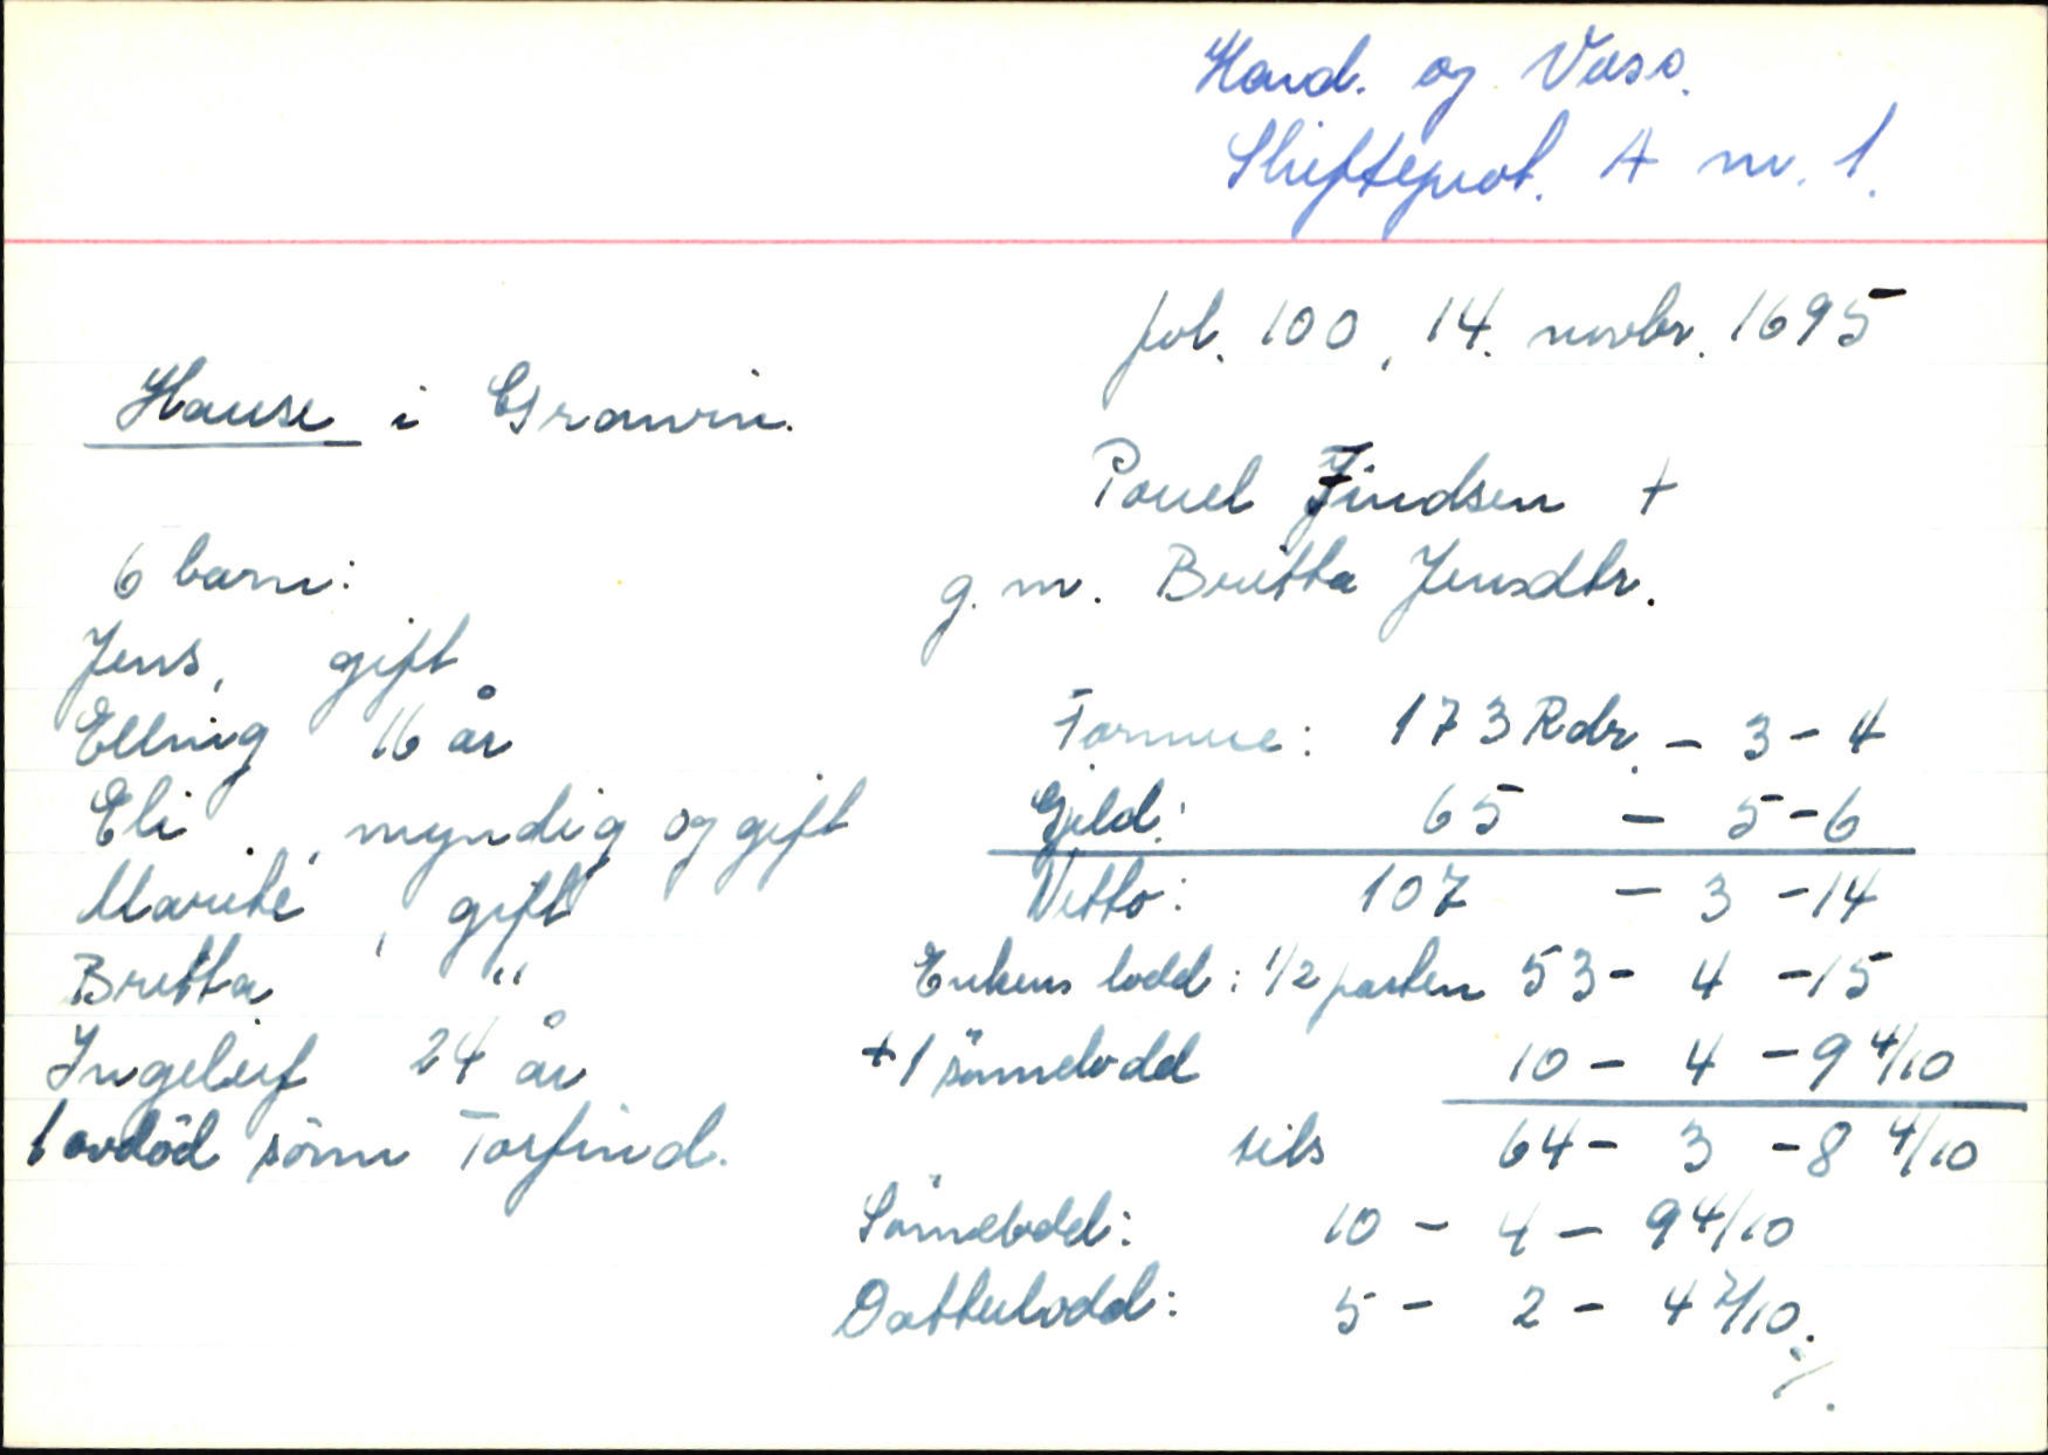 Hard. og Voss.
Skifteprot. A nr. 1.
fol. 100, 14. novbr. 1695
Hause i Granvin.
Pouel Findsen +
g. m. Britta Jensdtr.
6 barn:
Jens, gift
Elling 16 år
Eli . , myndig og gift
Marite , gift
Britta "
Ingeleif 24 år
1 avdöd sönn Torfind.
Formue: 173 Rdr. - 3 - 4
Gjeld: 65 - 5 - 6
Netto: 107 - 3 - 14
Enkens lodd: 1/2 parten 53 - 4 - 15
+ 1 sönnelodd 10 - 4 - 9 4/10
tils 64 - 3 - 8 4/10
Sönnelodd: 10 - 4 - 9 4/10
Datterlodd: 5 - 2 - 4 7/10.